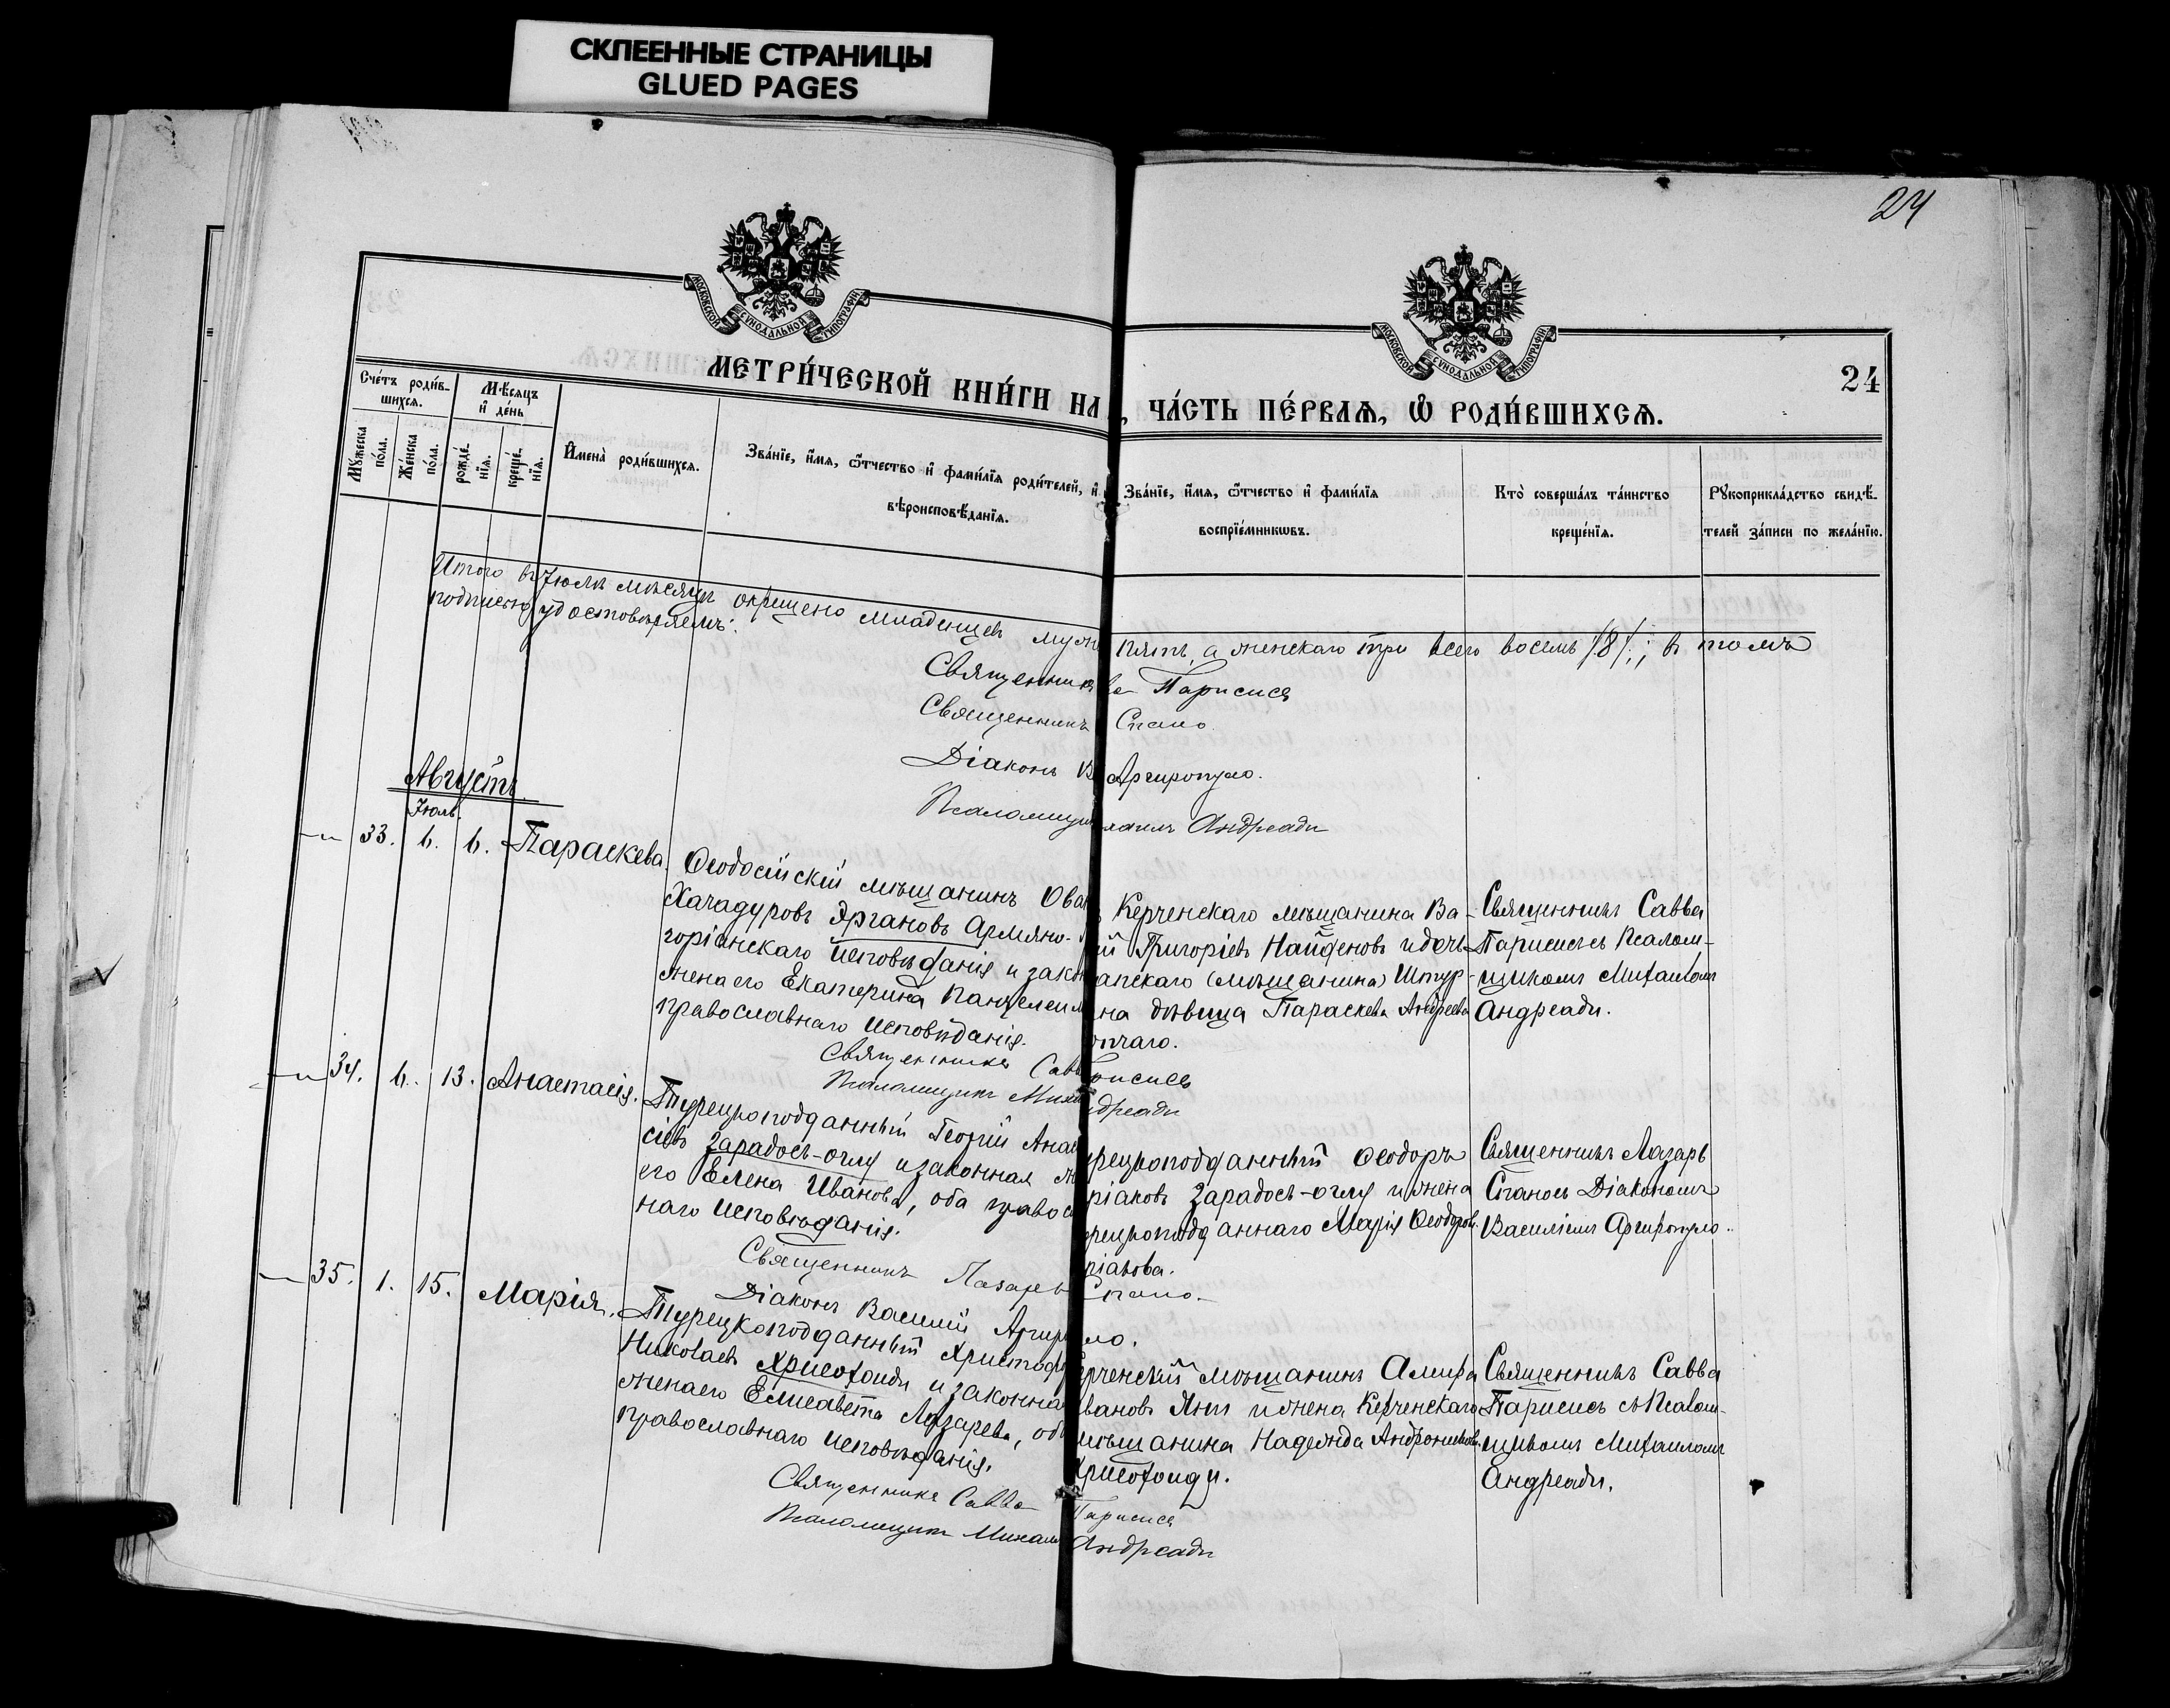 СКЛЕЕННЫЕ СТРАНИЦЫ
GLUED PAGES
24
МОСКОВСКОЙ СѴНОДАЛЬНОЙ ТИПОГРАФІИ
МОСКОВСКОЙ СѴНОДАЛЬНОЙ ТИПОГРАФІИ
24
МЕТРИ́ЧЕСКОЙ КНИ́ГИ НА
, ЧА́СТЬ ПЕ́РВАЯ, Ѡ РОДИ́ВШИХСЯ.
Сче́тъ роди́в-
шихся.
Мꙋжеска по́ла.
Же́нска по́ла.
Мѣ́сяцъ и҆ де́нь
рожде́-нїя.
креще́-нїя.
И҆мена̀ роди́вшихся.
Зва́нїе, и҆́мя, ѻ҆́тчество и҆ фами́лїя роди́телей, и҆
вѣроисповѣ́данїя.
Зва́нїе, и҆́мя, ѻ҆́тчество и҆ фами́лїя
воспрїе́мникѡвъ.
Кто̀ соверша́лъ та́инство
креще́нїя.
Рꙋкоприкла́дство свидѣ́-
телей за́писи по жела́нїю.
Итого въ Іюлѣ мѣсяцѣ окрещено младенцевъ муж
пять, а женскаго три всего восемь /8/; въ томъ
подписью удостовѣряемъ:
Священникъ
Парисисъ
Священникъ
Спано
Діаконъ В
Аргиропуло.
Псаломщи
хаилъ Андреади
Августъ
Іюль.
33. 6. 6. Параскева.
Ѳеодосійскій мѣщанинъ Ован
Хачадуровъ Эргановъ Армяно-
горіанскаго исповѣданія и закон
жена его Екатерина Пантелеим
православнаго исповѣданія.
Керченскаго мѣщанина Ва-
ій Григорьевъ Найденовъ и дочь
апскаго (мѣщанина) Штур-
на дѣвица Параскева Андреева
Священникъ Савва
Парисисъ съ Псалом-
щикомъ Михаиломъ
Андреади.
Священникъ Савв
рисисъ
Псаломщикъ Миха
ндреади
34. 6. 13. Анастасія.
Турецкоподданный Георгій Анас
сіевъ Зарадосъ-оглу и законная ж
его Елена Иванова, оба правосл
наго исповѣданія.
урецкоподданный Ѳеодоръ
ріаковъ Зарадосъ-оглу и жена
урецкоподданнаго Марія Ѳеодоров.
ріакова.
Священникъ Лазарь
Спано съ Діакономъ
Василіемъ Аргиропуло.
Священникъ Лазарь
Спано.
Діаконъ Василій Аргиро
ло.
35. 1. 15. Марія.
Турецкоподданный Христофо
Николаевъ Хрисофоиди и законная
жена его Елисавета Лазарева, оба
православнаго исповѣданія.
ерченскій мѣщанинъ Амира
вановъ Яни и жена Керченскаго
мѣщанина Надежда Андроникова
Хрисофоиди.
Священникъ Савва
Парисисъ съ Псалом-
щикомъ Михаиломъ
Андреади.
Священникъ Савва
Парисисъ
Псаломщикъ Михаил
Андреади